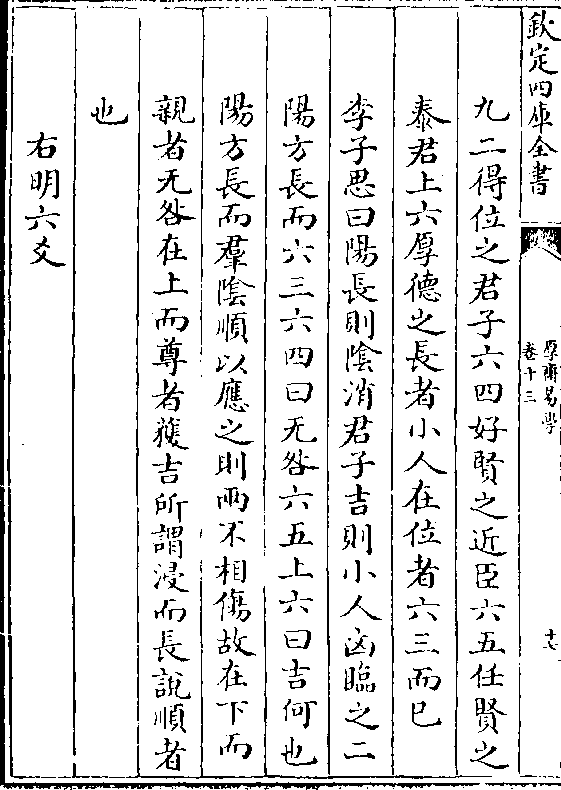 欽定四庫全書
厚齋易學
卷十三
十七
九二得位之君子六四好賢之近臣六五任賢之
泰君上六厚德之長者小人在位者六三而已
李子思曰陽長則陰消君子吉則小人凶臨之二
陽方長而六三六四曰无咎六五上六曰吉何也
陽方長而羣陰順以應之則兩不相傷故在下而
親者无咎在上而尊者獲吉所謂浸而長說順者
也
右明六爻